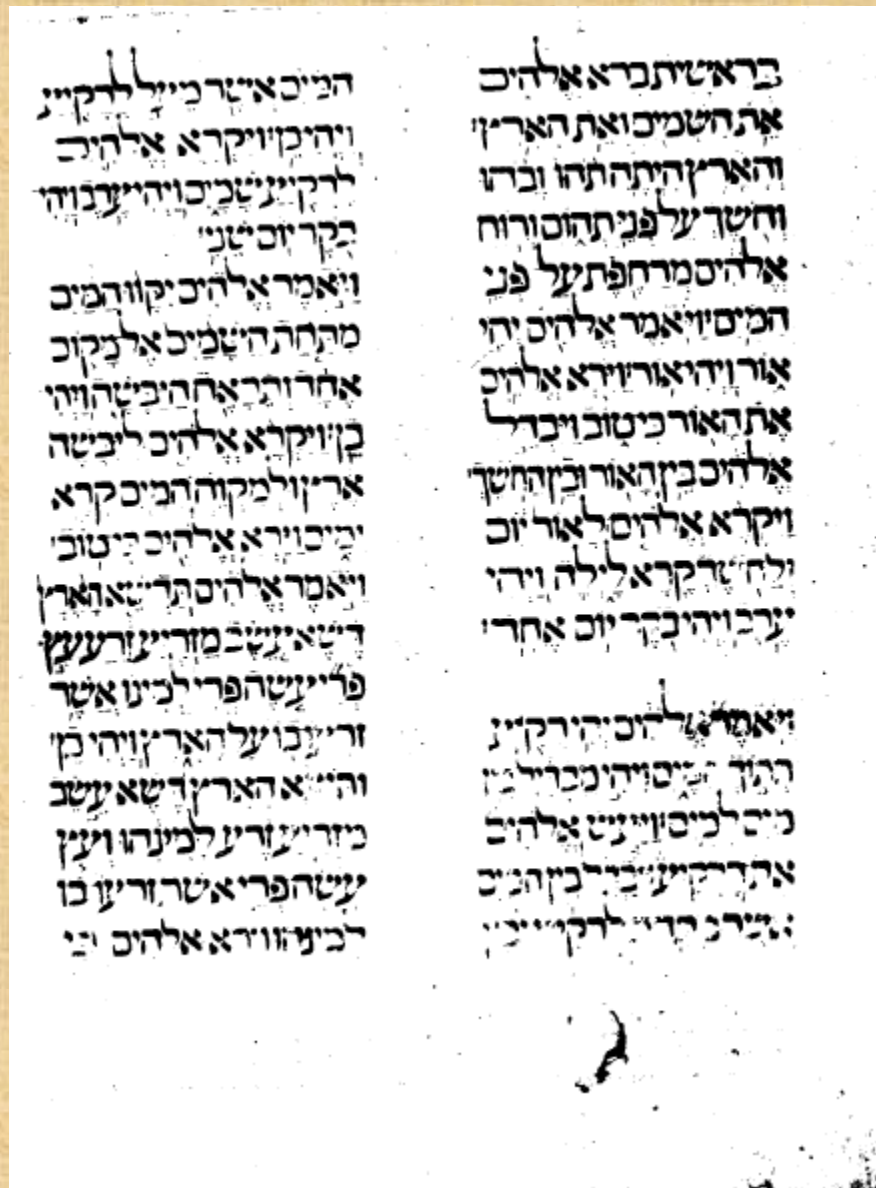 בראשית ברא אלהים
את השמים ואת הארץ׃
והארץ היתה תהו ובהו
וחשך על פני תהום ורוח
אלהים מרחפת על פני
המים׃ ויאמר אלהים יהי
אור ויהי אור׃ וירא אלהים
את האור כי טוב ויבדל
אלהים בין האור ובין החשך׃
ויקרא אלהים לאור יום
ולחשך קרא לילה ויהי
ערב ויהי בקר יום אחד׃
ויאמר אלהים יהי רקיע
בתוך המים ויהי מבדיל בין
מים למים׃ ויעש אלהים
את הרקיע ויבדל בין המים
אשר לרקיע ובין
המים אשר מעל לרקיע
ויהי כן׃ ויקרא אלהים
לרקיע שמים ויהי ערב ויהי
בקר יום שני׃
ויאמר אלהים יקוו המים
מתחת השמים אל מקום
אחד ותראה היבשה ויהי
כן׃ ויקרא אלהים ליבשה
ארץ ולמקוה המים קרא
ימים וירא אלהים כי טוב׃
ויאמר אלהים תדשא הארץ
דשא עשב מזריע זרע עץ
פרי עשה פרי למינו אשר
זרעו בו על הארץ ויהי כן׃
הארץ דשא עשב
מזריע זרע למינהו ועץ
עשה פרי אשר זרעו בו
למינהו וירא אלהים כי